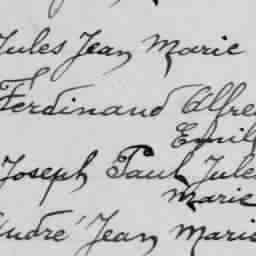 Jules Jean Marie
Ferdinand Alfre
Emil
Joseph Paul Jule
Marie
André Jean Marie